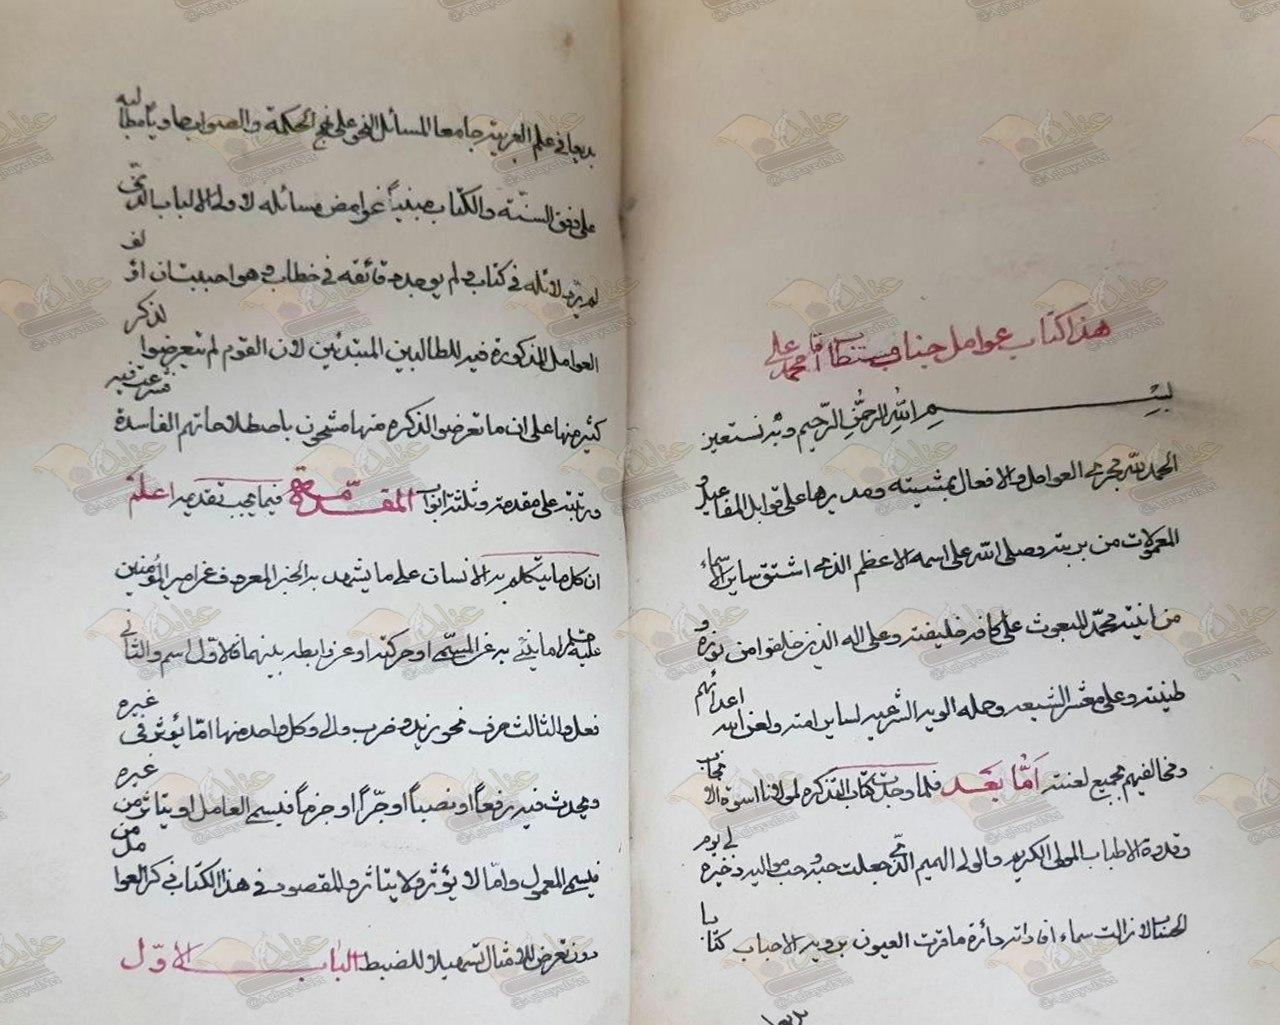 هذا كتاب عوامل جناب مستطاب اقا محمد على
بسم الله الرحمن الرحيم وبه نستعين
الحمد لله مجرى العوامل والافعال بمشيته ومديرها على قوابل المفاعيل و
المعمولات من بريته وصلى الله على اسمه الاعظم الذى اشتق ساير الاسماء
من انيته محمد المبعوث على كافه خليقته وعلى اله الذين خلقوا من نوره و
طينته وعلى معشر الشيعه وحمله الويه الشرعيه لساير امته ولعن الله اعدائهم
ومخالفيهم بجميع لعنته اما بعد فلما وجدت كتاب التذكره لمولانا اسوة الانجاب
وقدوة الاطياب المولى الكريم والولى الحميم الذى جعلت حبه وحب مواليه ذخيره لى يوم
الحساب لا زالت سماء افاداته دائرة ما قرت العيون برويه الاحباب كتابا
بديعا
بديعا فى علم العربيه جامعا لمسائل النحو على نهج الحكمة والصواب حاويا مطالبه
على وفق السنة والكتاب مبنيا غوامض مسائله لاولى الالباب الذى
لم ير دلائله فى كتاب ولم يوجد دقائقه فى خطاب وهو احببت ان اؤلف
العوامل المذكورة فيه للطالبين المبتدئين لان القوم لم يتعرضوا لذكر
كثير منها على ان ما تعرضوا لذكره منها مشحون باصطلاحاتهم الفاسدة فشرعت فيه
ورتبته على مقدمة وثلثة ابواب المقدمة فيما يجب تقديمه اعلم
ان كل ما يتكلم به الانسان على ما يشهد به الخبر المعروف عن امير المؤمنين
عليه السلام اما ينبئ به عن المسمى او حركته او عن رابطه بينهما فالاول اسم والثانى
فعل والثالث حرف نحو زيد وضرب والى وكل واحد منها اما يؤثر فى غيره
ويحدث فيه رفعا او نصبا او جرا او جزما فيسمى العامل او يتاثر من غيره
فيسمى المعمول واما لا يؤثر ولا يتاثر والمقصود فى هذا الكتاب ذكر العوامل من
دون تعرض للامثال تسهيلا للضبط الباب الاول